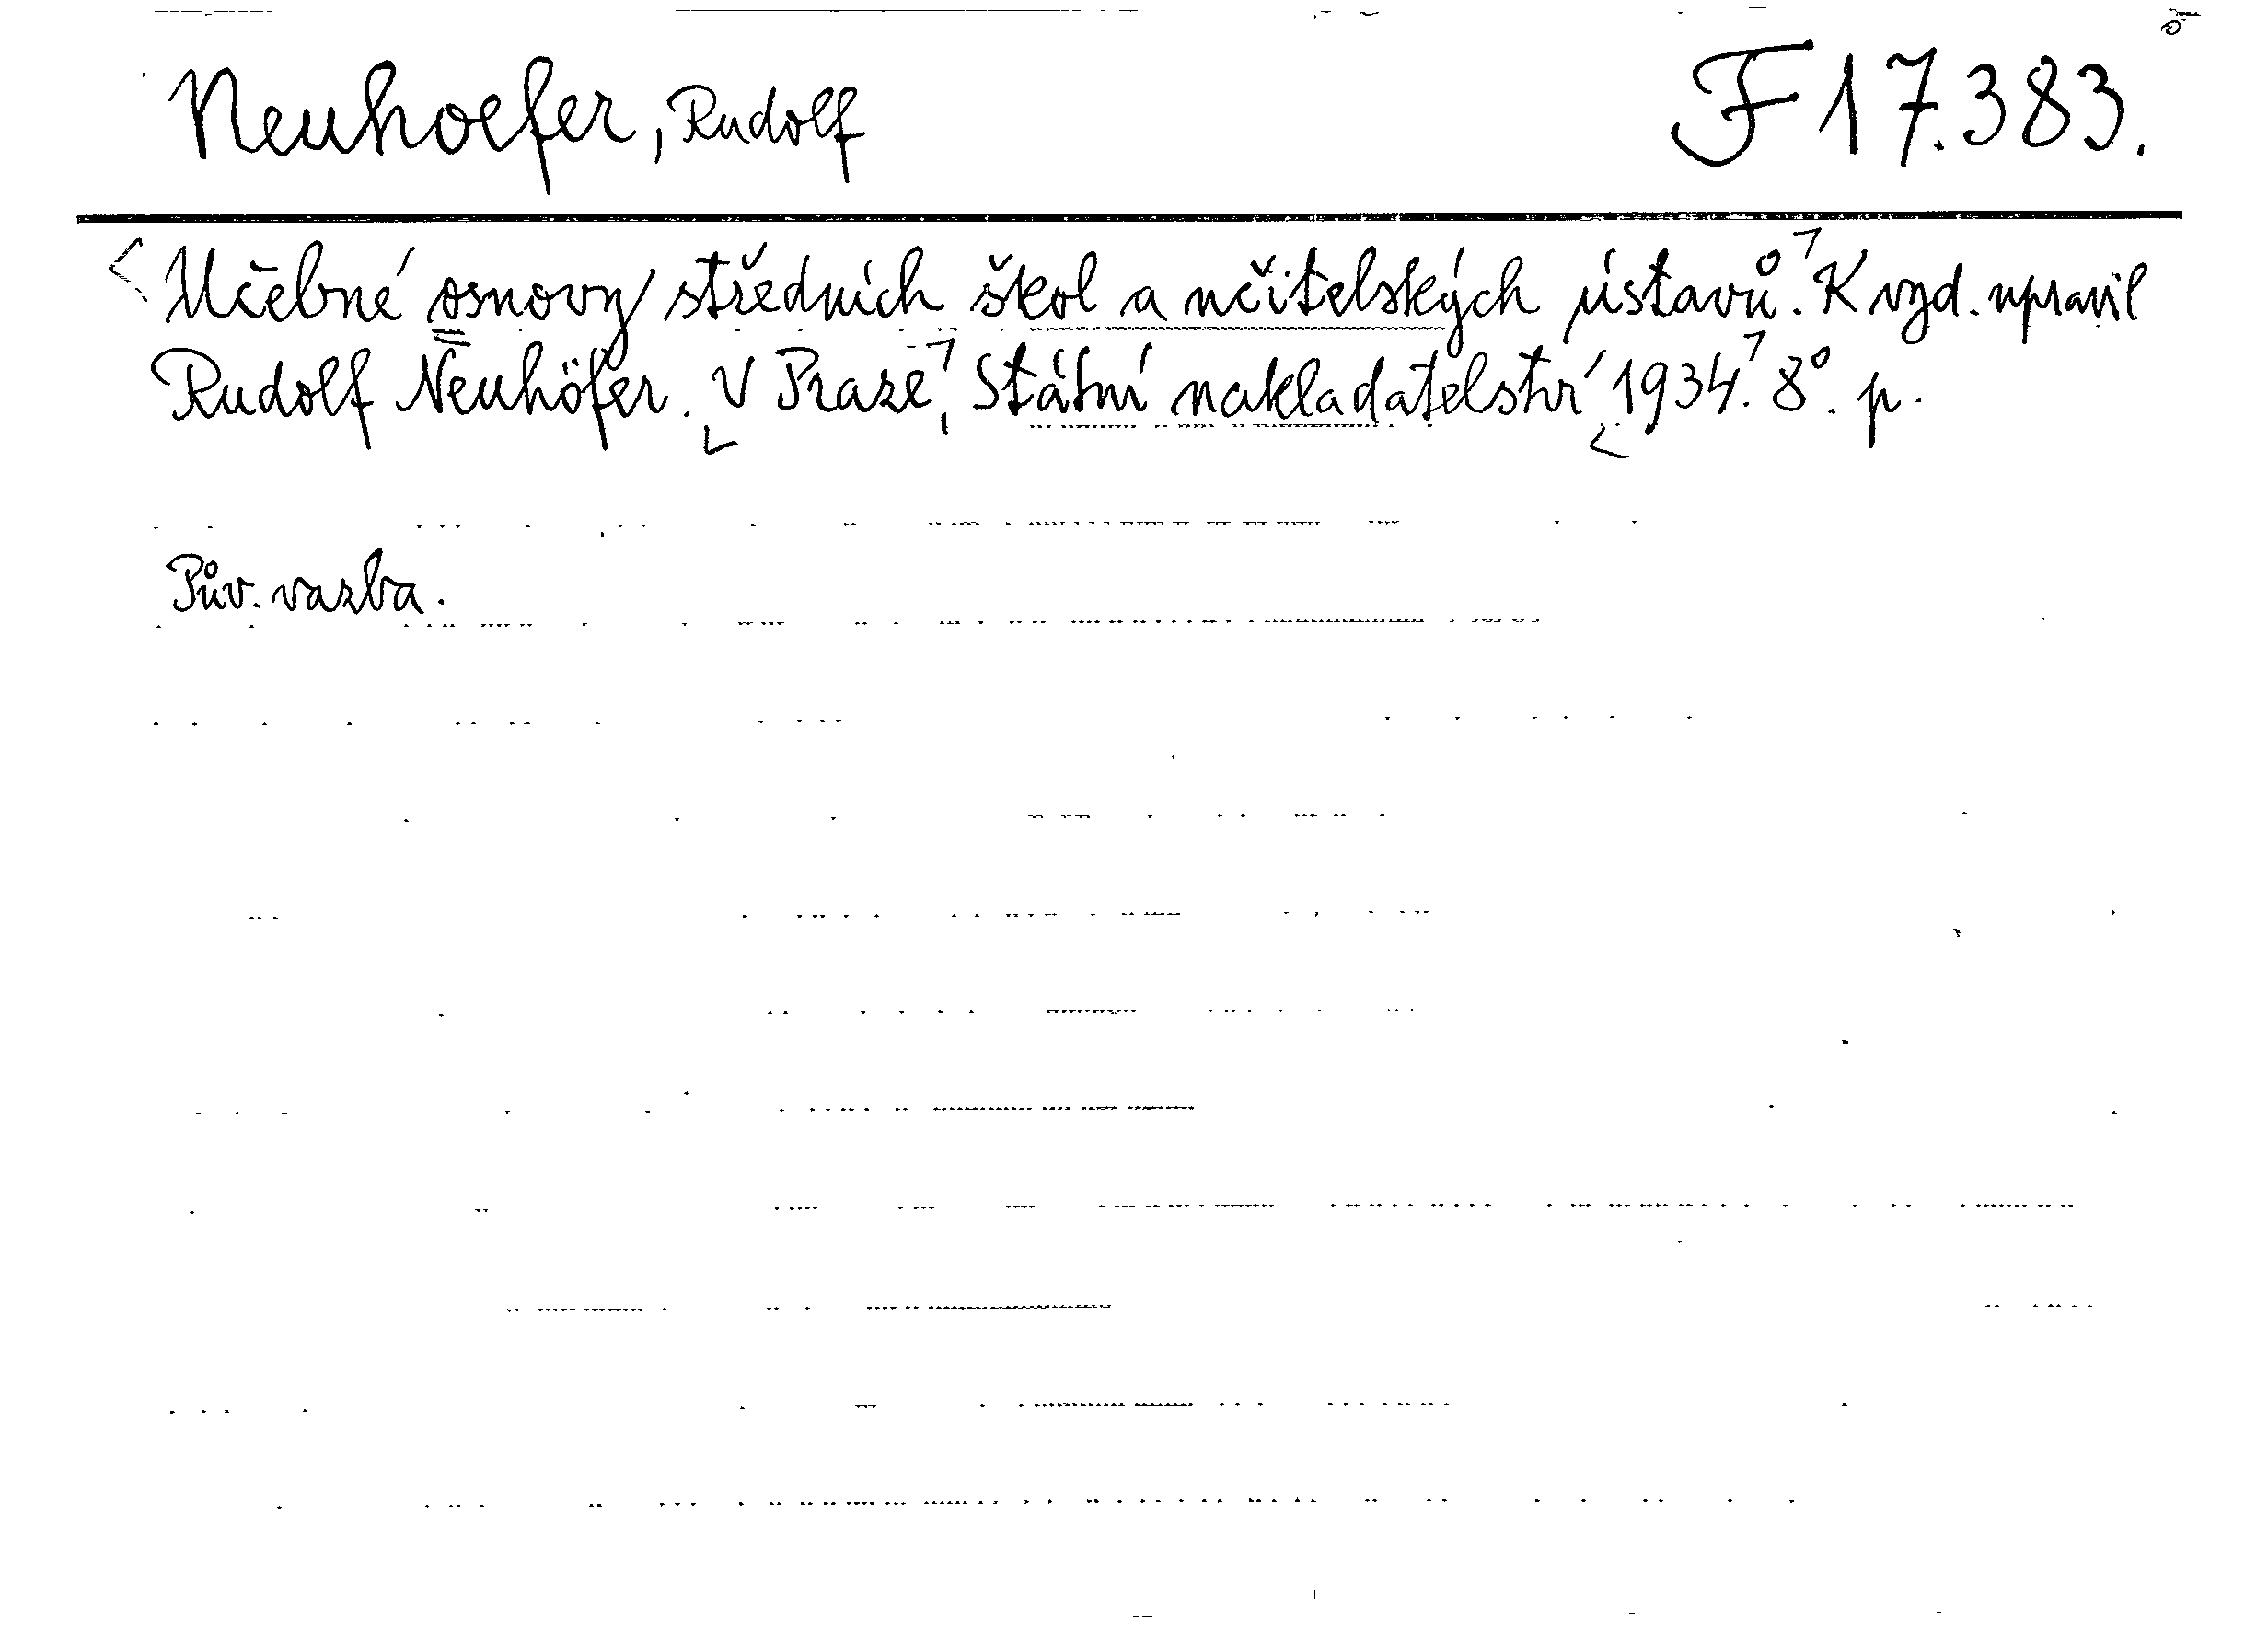 Neuhoefer, Rudolf F 17.383.
Učebné osnovy středních škol a učitelských ústavů. K vyd. upravil
Rudolf Neuhöfer. V Praze, Státní nakladatelství 1934. 8°. p.
Pův. vazba.